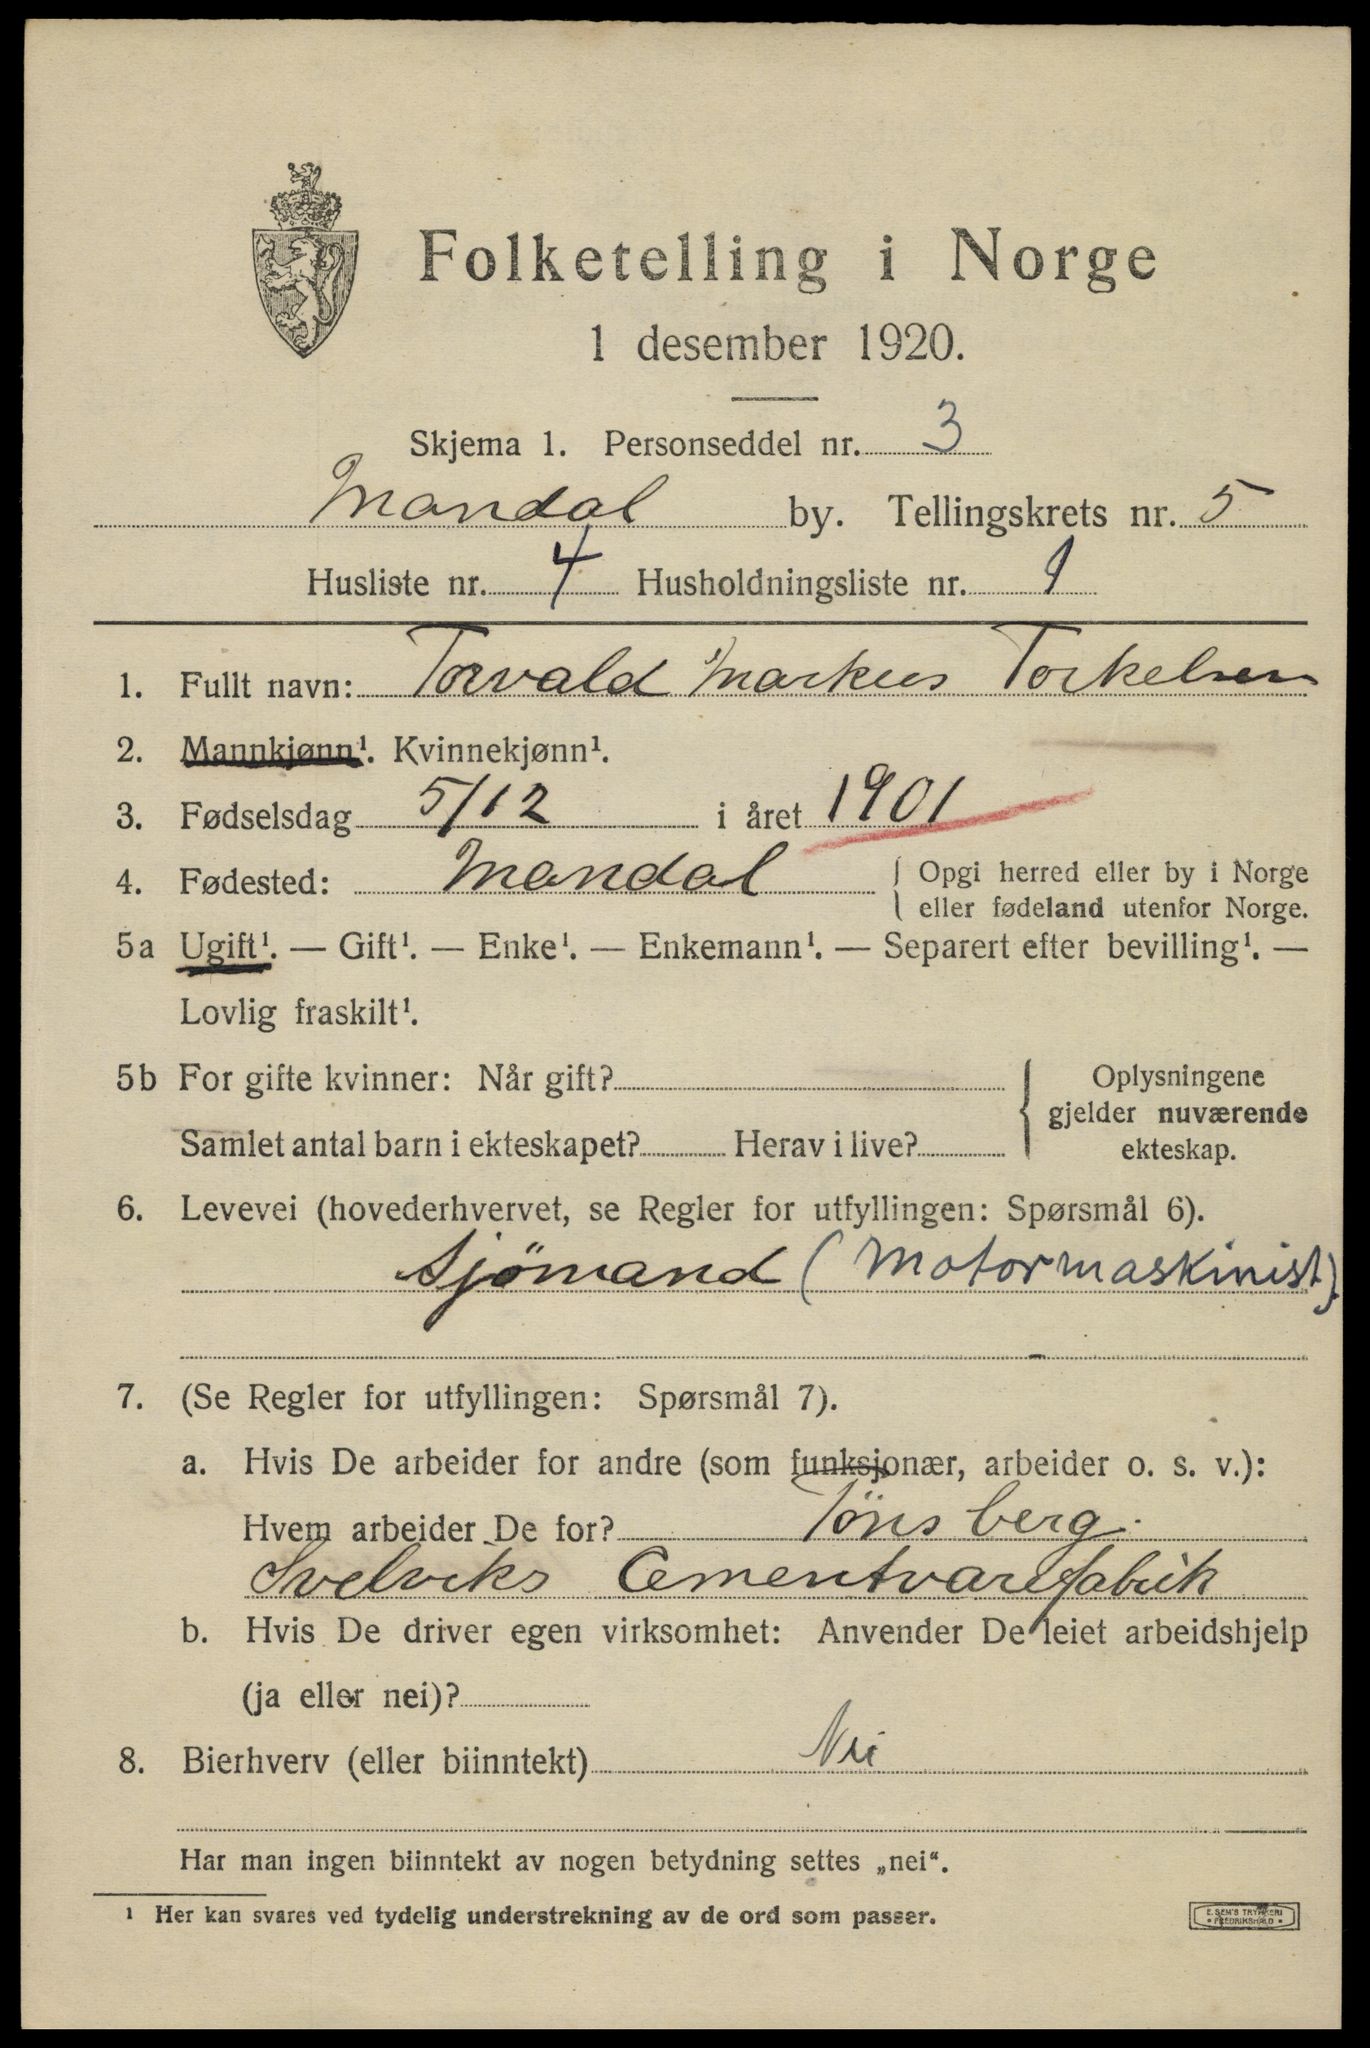 Folketelling i Norge
1 desember 1920.
Skjema 1. Personseddel nr. 3
Mandal by. Tellingskrets nr. 5
Husliste nr. 4 Husholdningsliste nr. 9
1. Fullt navn: Torvald Markus Torkelsen
2. Mannkjønn¹. Kvinnekjønn¹.
3. Fødselsdag 5/12 i året 1901
4. Fødested: Mandal { Opgi herred eller by i Norge
eller fødeland utenfor Norge.
5a Ugift¹. — Gift¹. — Enke¹. — Enkemann¹. — Separert efter bevilling¹. —
Lovlig fraskilt¹.
5b For gifte kvinner: Når gift? { Oplysningene
gjelder nuværende
Samlet antal barn i ekteskapet? Herav i live? ekteskap.
6. Levevei (hovederhvervet, se Regler for utfyllingen: Spørsmål 6).
Sjömand (Motormaskinist)
7. (Se Regler for utfyllingen: Spørsmål 7).
a. Hvis De arbeider for andre (som funksjonær, arbeider o. s. v.):
Hvem arbeider De for? Tönsberg.
Svelviks Cementvarefabrik
b. Hvis De driver egen virksomhet: Anvender De leiet arbeidshjelp
(ja eller nei)?
8. Bierhverv (eller biinntekt) Nei
Har man ingen biinntekt av nogen betydning settes „nei“.
¹ Her kan svares ved tydelig understrekning av de ord som passer.
E. SEM'S TRYKKERI
• FREDRIKSHALD •